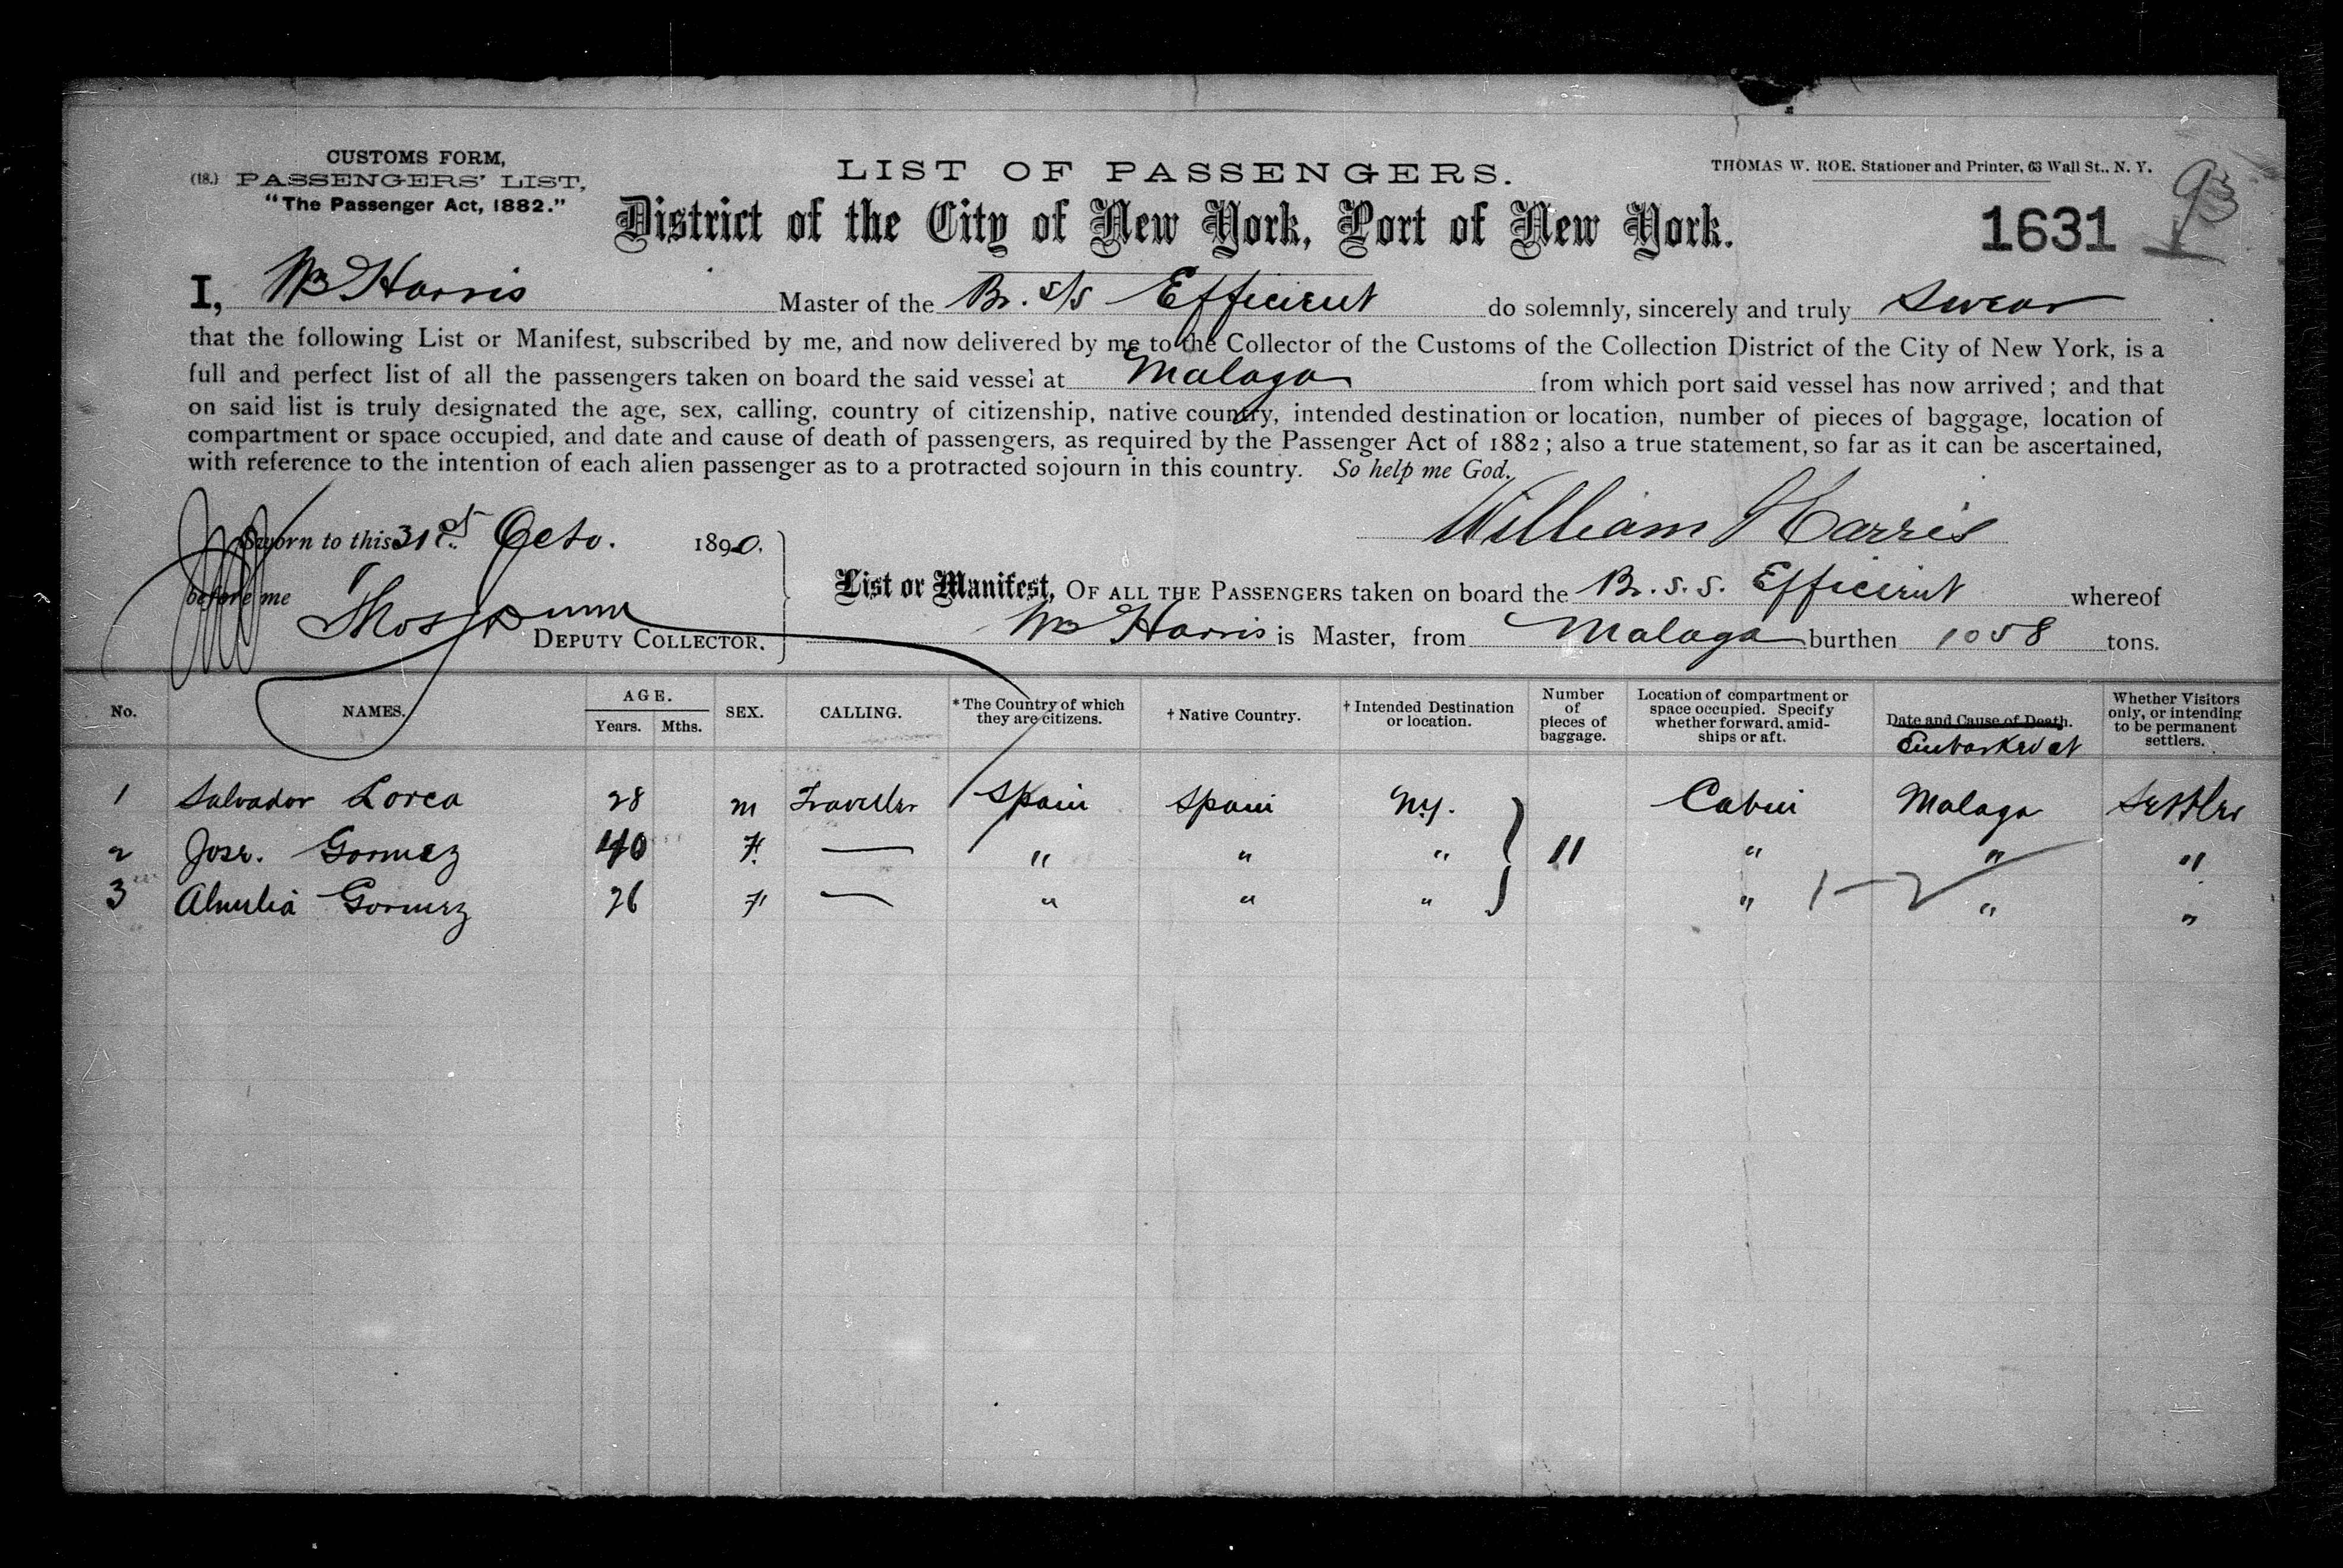 CUSTOMS FORM,
(18.) PASSENGERS' LIST,
"The Passenger Act, 1882."
LIST OF PASSENGERS.
District of the City of New York, Port of New York.
THOMAS W. ROE. Stationer and Printer, 63 Wall St., N. Y.
1631
93
I, Wm Harris Master of the Br. s/s Efficient do solemnly, sincerely and truly Swear
that the following List or Manifest, subscribed by me, and now delivered by me to the Collector of the Customs of the Collection District of the City of New York, is a
full and perfect list of all the passengers taken on board the said vessel at Malaga from which port said vessel has now arrived; and that
on said list is truly designated the age, sex, calling, country of citizenship, native country, intended destination or location, number of pieces of baggage, location of
compartment or space occupied, and date and cause of death of passengers, as required by the Passenger Act of 1882; also a true statement, so far as it can be ascertained,
with reference to the intention of each alien passenger as to a protracted sojourn in this country. So help me God.
William Harris
Sworn to this 31st Octo. 1890.
before me Thos
DEPUTY COLLECTOR.
List or Manifest, OF ALL THE PASSENGERS taken on board the Br. S.S. Efficient whereof
Wm Harris is Master, from Malaga burthen 1058 tons.
No. NAMES. AGE. Years. Mths. SEX. CALLING. *The Country of which they are citizens. †Native Country. †Intended Destination or location. Number of pieces of baggage. Location of compartment or space occupied. Specify whether forward, amidships or aft. Date and Cause of Death. Embarked at Whether Visitors only, or intending to be permanent settlers.
1 Salvador Lorca 28 m Traveller Spain Spain N.Y. Cabin Malaga Settler
2 Jose. Gormez 40 F. — " " " 11 " " "
3 Gormez 26 F — " " " " 1-2 " "